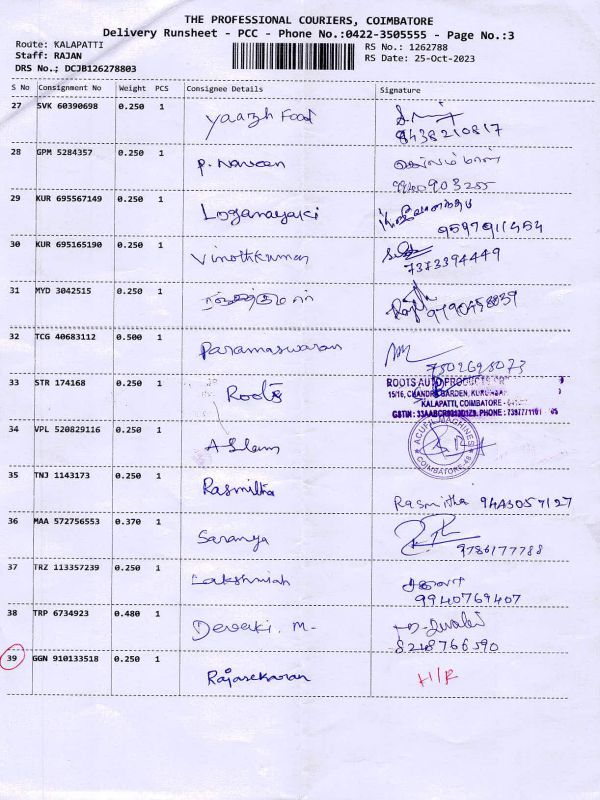 THE PROFESSIONAL COURIERS, COIMBATORE
Delivery Runsheet - PCC - Phone No.:0422-3505555 - Page No.:3
Route: KALAPATTI
RS No.: 1262788
Staff: RAJAN
RS Date: 25-Oct-2023
DRS No.; DCJB126278803
S No Consignment No Weight PCS Consignee Details Signature
27 SVK 60390698 0.250 1 Yaazh Food
8438210817
28 GPM 5284357 0.250 1 P. Naveen
9940903255
29 KUR 695567149 0.250 1 Loganayaki
9597911454
30 KUR 695165190 0.250 1 Vinothkumar
7373394449
31 MYD 3042515 0.250 1
9790458839
32 TCG 40683112 0.500 1 Paramaswaran
7502695073
33 STR 174168 0.250 1 Roots
ROOTS AUTO PRODUCTS
15/16, CHANDRA GARDEN,
KALAPATTI, COIMBATORE -
GSTIN : PHONE :
34 VPL 520829116 0.250 1 Aslam
ACUFIL MACHINES
COIMBATORE-48
35 TNJ 1143173 0.250 1 Rasmitha
Rasmitha 9443057127
36 MAA 572756553 0.370 1 Saranya
9786177788
37 TRZ 113357239 0.250 1 Lakshmiah
9940769407
38 TRP 6734923 0.480 1 Devaki. M-
8248766590
39 GGN 910133518 0.250 1 Rajasekaran H/R